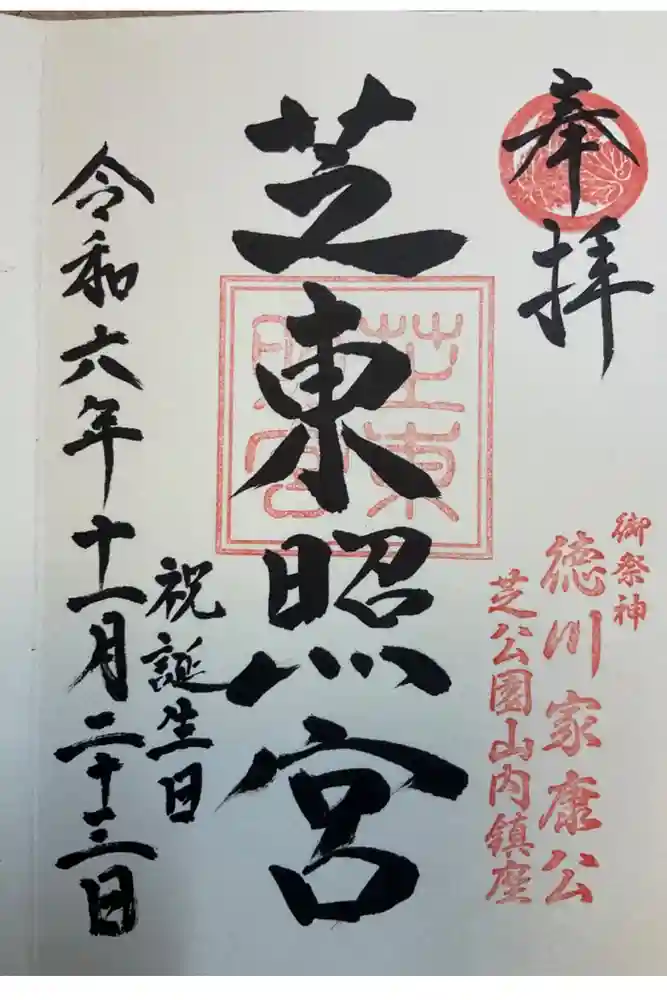 奉拝
御祭神
徳川家康公
芝公園山内鎮座
芝東照宮
芝東照宮
祝誕生日
令和六年十一月二十三日